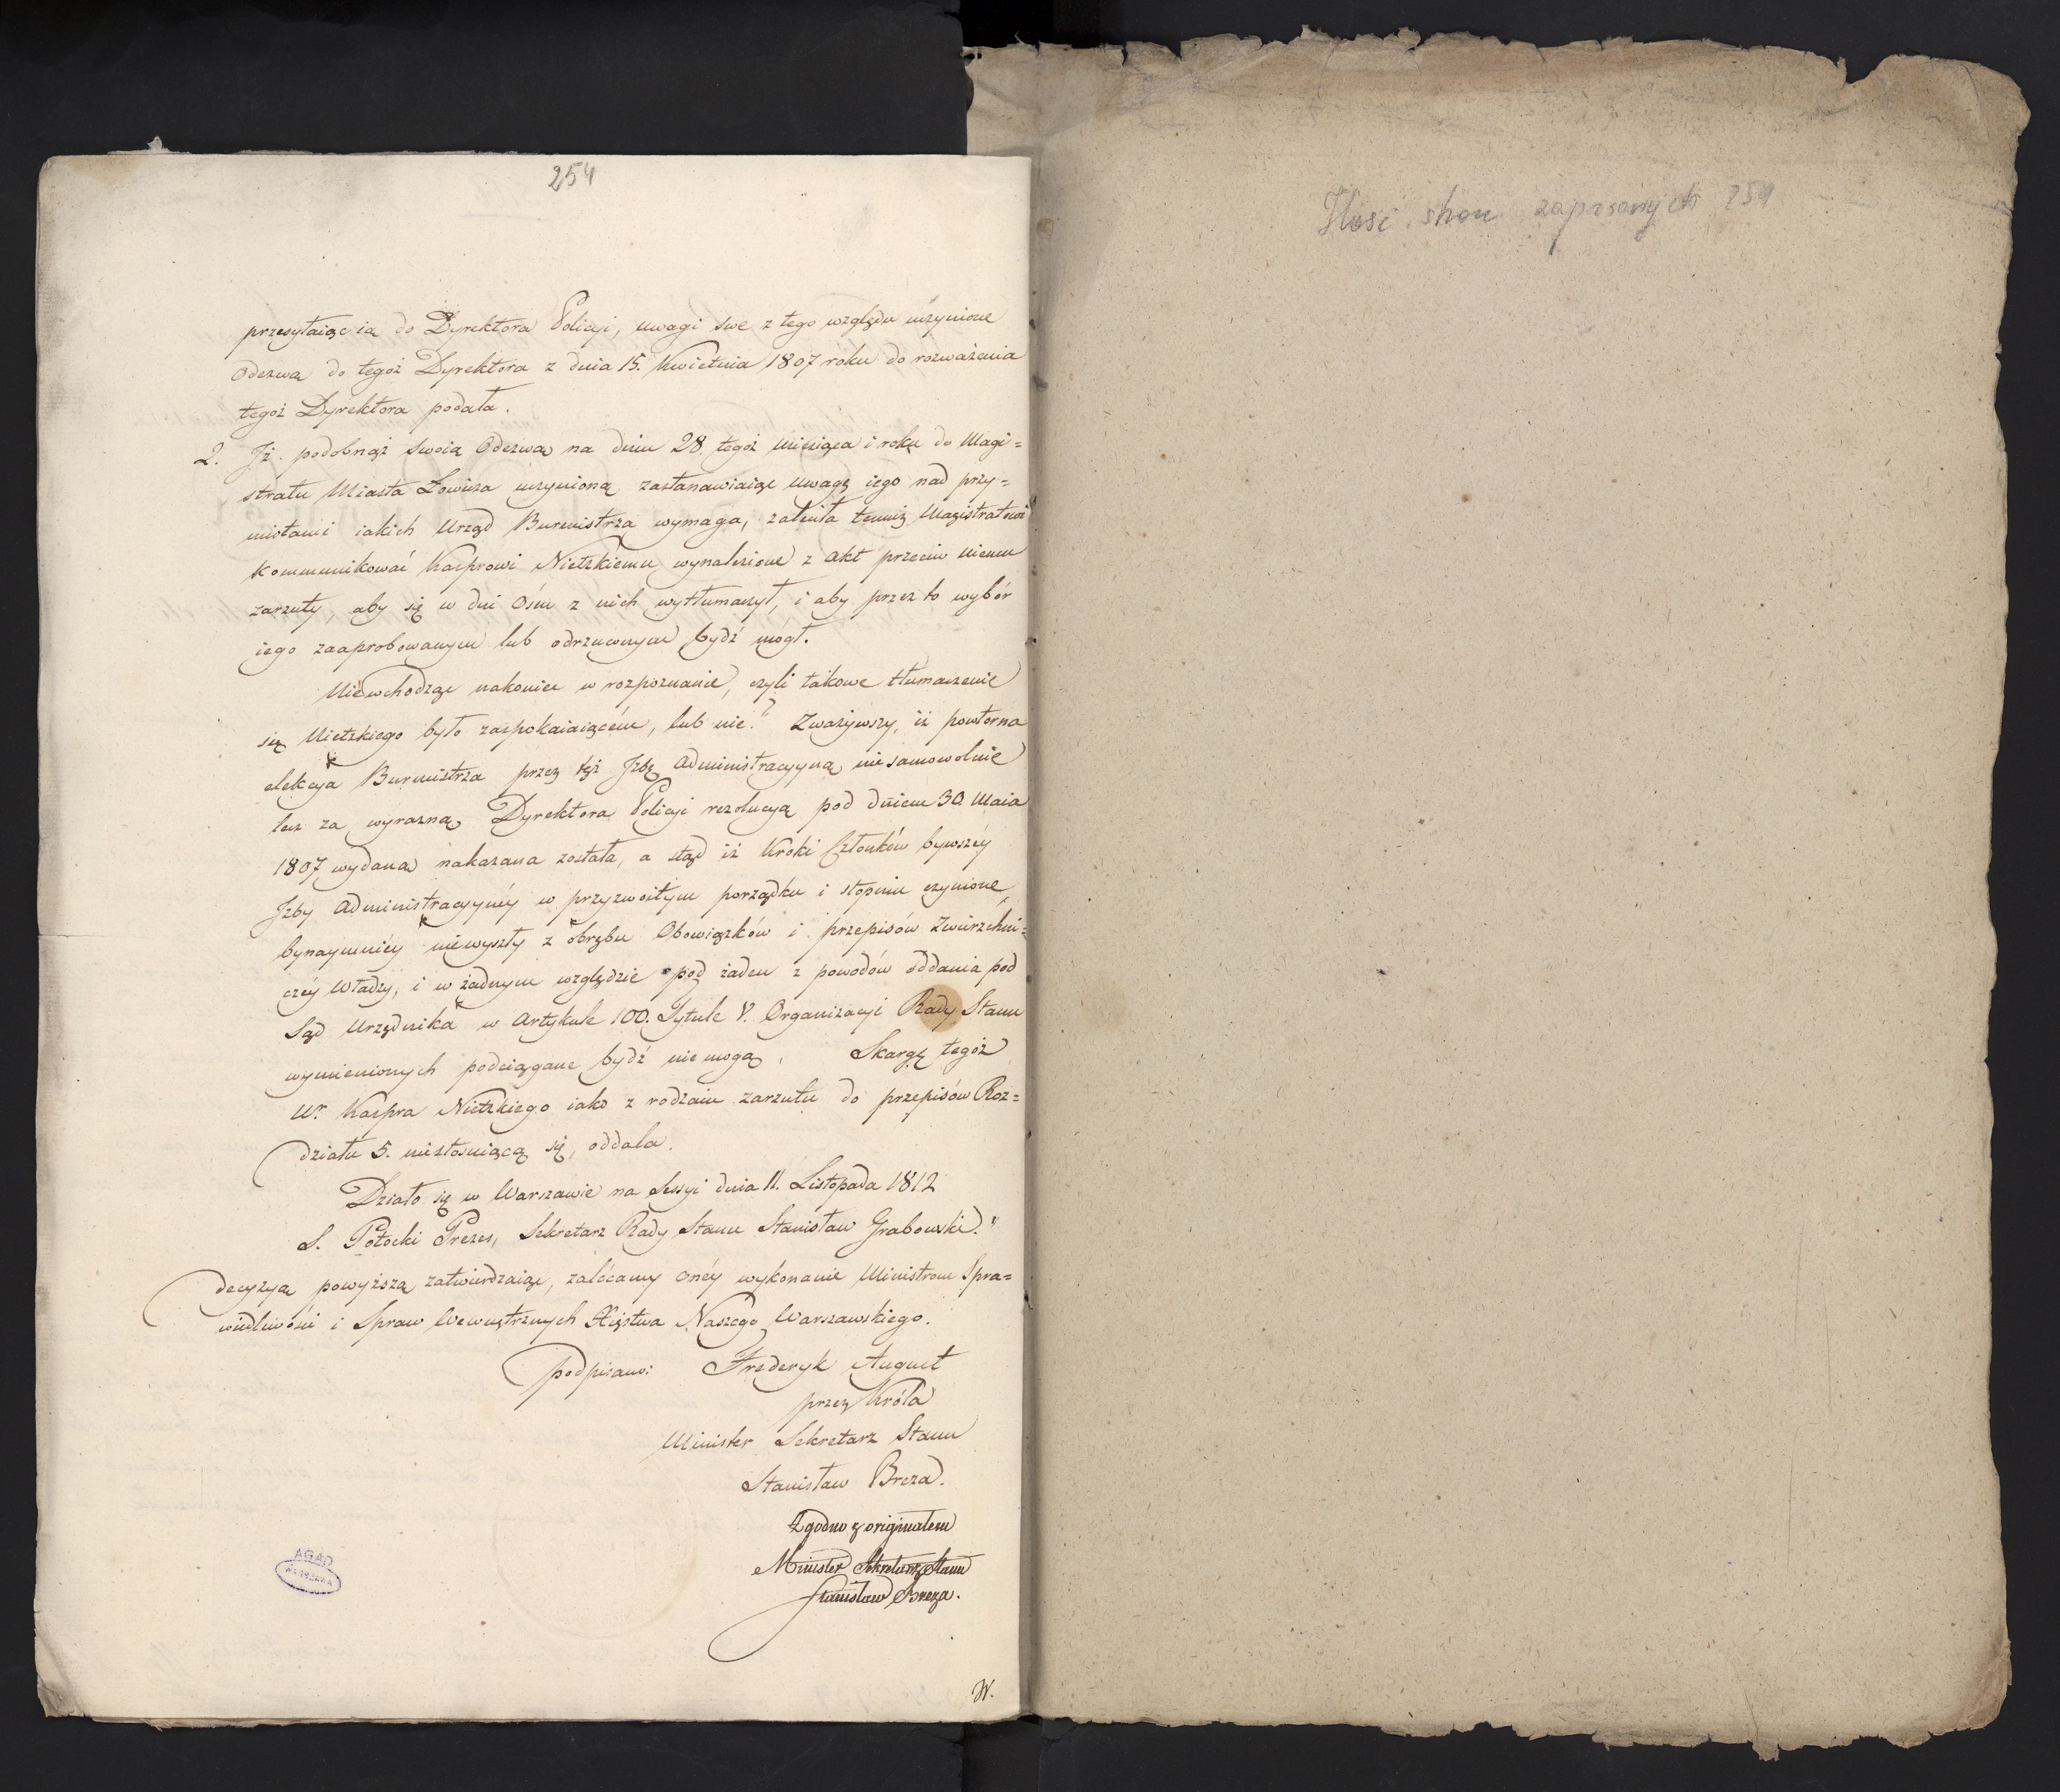 254
przesyłaiąc ią do Dyrektora Policyi, uwagi swe z tego względu uczynione
Odezwą do tegoż Dyrektora z dnia 15. Kwietnia 1807 roku do rozważenia
tegoż Dyrektora podała.
2. Iż podobnąż swoią Odezwą na dniu 28. tegoż miesiąca i roku do Magi=
stratu Miasta Łowicza uczynioną zastanawiaiąc uwagę iego nad przy=
miotami iakich Urząd Burmistrza wymaga, zaleciła temuż Magistratowi
kommunikować Kasprowi Nietzkiemu wynalezione z Akt przeciw niemu
zarzuty, aby się w dni Ośm z nich wytłumaczył, i aby przez to wybór
iego zaaprobowanym lub odrzuconym bydź mógł.
Niewchodząc nakoniec w rozpoznanie, czyli takowe tłumaczenie
się Nietzkiego było zaspokaiaiącém, lub nie? Zważywszy, iż powtorna
elekcya Burmistrza przez tęż Jzbę Administracyyną nie samowolnie
lecz za wyrazną Dyrektora Policyi rezolucyą pod dniem 30. Maia
1807 wydaną nakazana została, a stąd iż Kroki Członków bywszéy
Jzby Administracyynéy w przyzwoitym porządku i stopniu czynione,
bynaymniéy niewyszły z obrębu Obowiązków i przepisów Zwierzchni=
czéy Władzy, i w żadnym względzie pod żaden z powodów oddania pod
Sąd Urzędnika w Artykule 100. Tytule V. Organizacyi Rady Stanu
wymienionych podciągane bydź nie mogą, Skargę tegoż
Ur. Kaspra Nietzkiego iako z rodzaiu zarzutu do przepisów Roz=
działu 5. niestosuiącą się, oddala.
Działo się w Warszawie na Sessyi dnia 11. Listopada 1812
S. Potocki Prezes, Sekretarz Rady Stanu Stanisław Grabowski."
decyzyą powyższą zatwierdzaiąc, zalécamy onéy wykonanie Ministrom Spra=
wiedliwości i Spraw Wewnętrznych Xięstwa Naszego Warszawskiego.
podpisano: Frederyk August
przez Króla
Minister Sekretarz Stanu
Stanisław Breza.
Zgodno z originałem
Minister Sekretarz Stanu
Stanisław Breza.
W.
AGAD
WARSZAWA
Ilość stron zapisanych 254